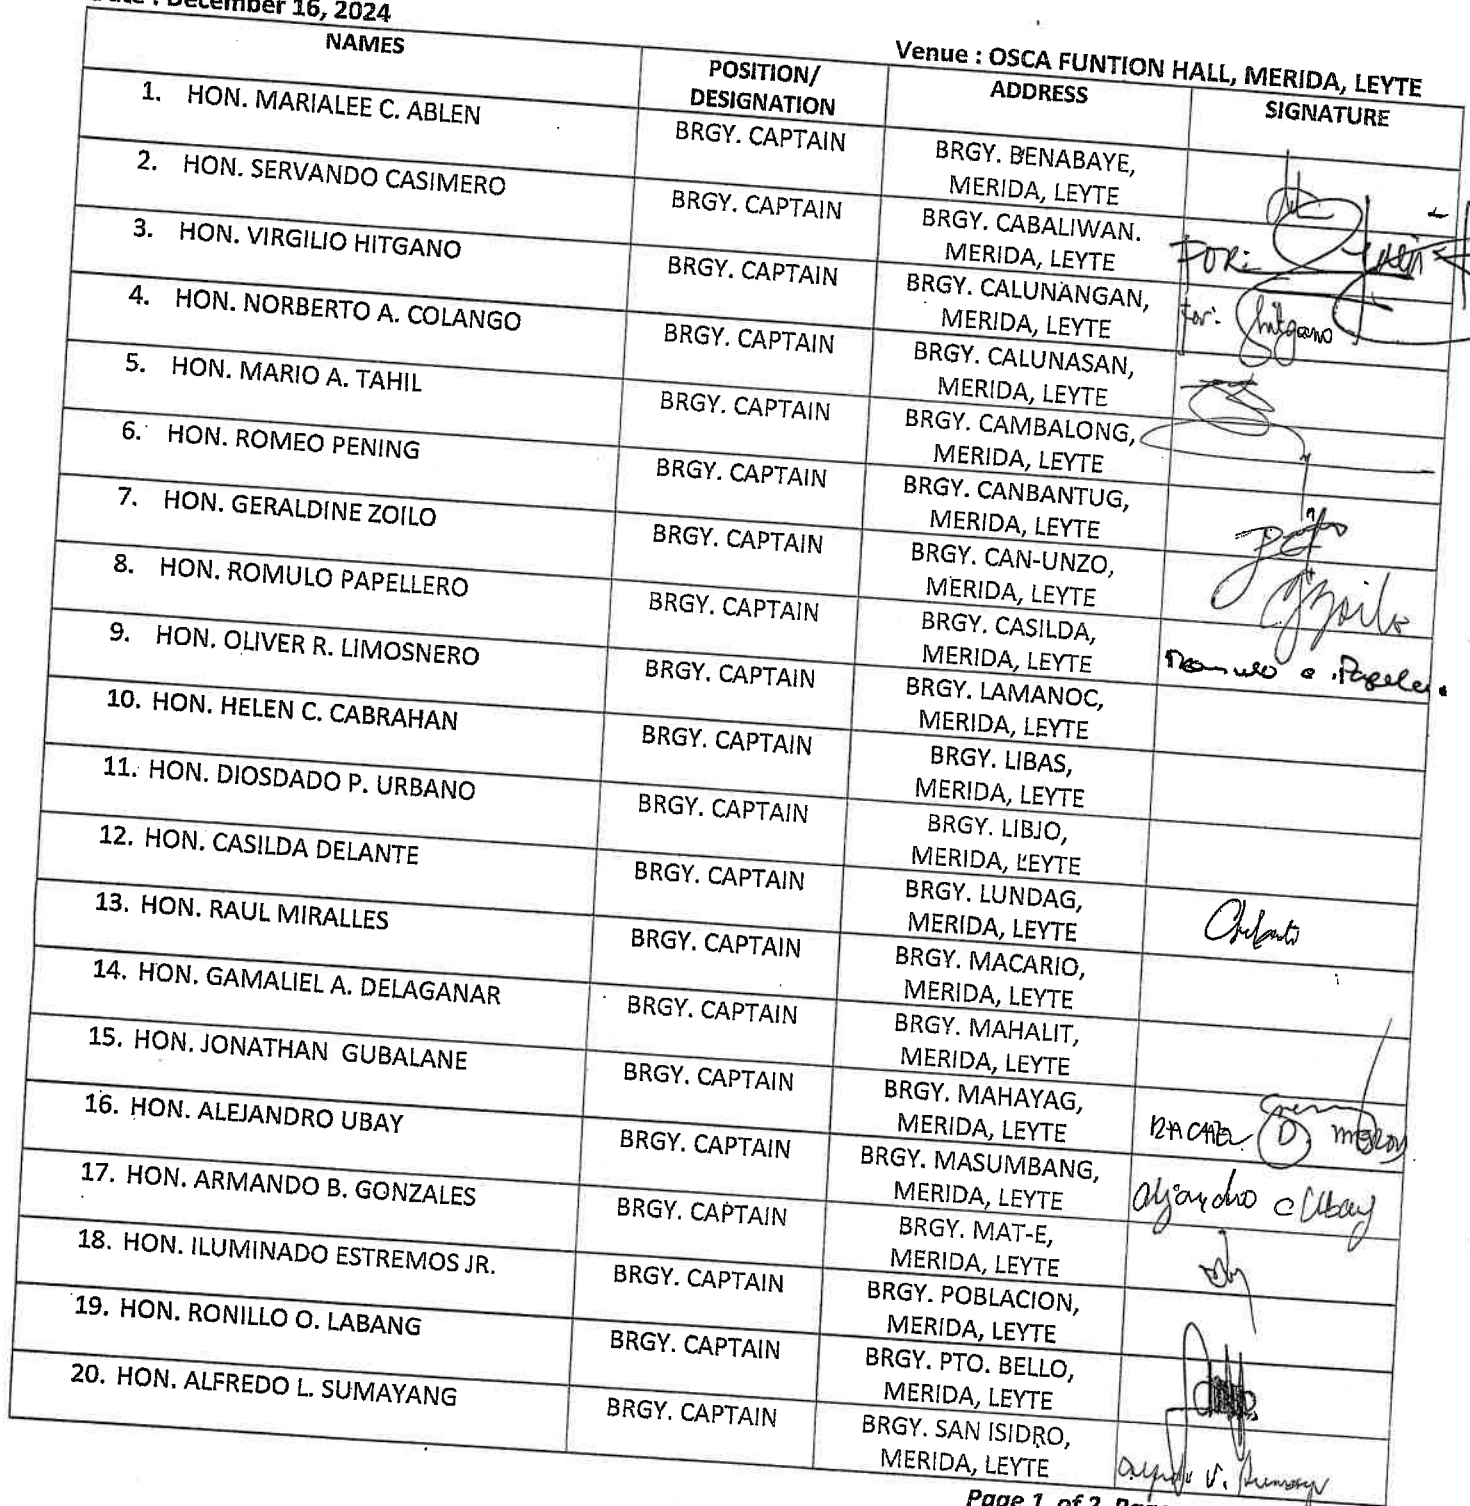 December 16, 2024
Venue : OSCA FUNTION HALL, MERIDA, LEYTE
NAMES
POSITION/
DESIGNATION
ADDRESS
SIGNATURE
1. HON. MARIALEE C. ABLEN
BRGY. CAPTAIN
BRGY. BENABAYE,
MERIDA, LEYTE
2. HON. SERVANDO CASIMERO
BRGY. CAPTAIN
BRGY. CABALIWAN.
MERIDA, LEYTE
FOR:
3. HON. VIRGILIO HITGANO
BRGY. CAPTAIN
BRGY. CALUNANGAN,
MERIDA, LEYTE
for: Hitgano
4. HON. NORBERTO A. COLANGO
BRGY. CAPTAIN
BRGY. CALUNASAN,
MERIDA, LEYTE
5. HON. MARIO A. TAHIL
BRGY. CAPTAIN
BRGY. CAMBALONG,
MERIDA, LEYTE
6. HON. ROMEO PENING
BRGY. CAPTAIN
BRGY. CANBANTUG,
MERIDA, LEYTE
7. HON. GERALDINE ZOILO
BRGY. CAPTAIN
BRGY. CAN-UNZO,
MERIDA, LEYTE
GZoilo
8. HON. ROMULO PAPELLERO
BRGY. CAPTAIN
BRGY. CASILDA,
MERIDA, LEYTE
9. HON. OLIVER R. LIMOSNERO
BRGY. CAPTAIN
BRGY. LAMANOC,
MERIDA, LEYTE
10. HON. HELEN C. CABRAHAN
BRGY. CAPTAIN
BRGY. LIBAS,
MERIDA, LEYTE
11. HON. DIOSDADO P. URBANO
BRGY. CAPTAIN
BRGY. LIBJO,
MERIDA, LEYTE
12. HON. CASILDA DELANTE
BRGY. CAPTAIN
BRGY. LUNDAG,
MERIDA, LEYTE
13. HON. RAUL MIRALLES
BRGY. CAPTAIN
BRGY. MACARIO,
MERIDA, LEYTE
14. HON. GAMALIEL A. DELAGANAR
BRGY. CAPTAIN
BRGY. MAHALIT,
MERIDA, LEYTE
15. HON. JONATHAN GUBALANE
BRGY. CAPTAIN
BRGY. MAHAYAG,
MERIDA, LEYTE
D.
16. HON. ALEJANDRO UBAY
BRGY. CAPTAIN
BRGY. MASUMBANG,
MERIDA, LEYTE
Alejandro C Ubay
17. HON. ARMANDO B. GONZALES
BRGY. CAPTAIN
BRGY. MAT-E,
MERIDA, LEYTE
18. HON. ILUMINADO ESTREMOS JR.
BRGY. CAPTAIN
BRGY. POBLACION,
MERIDA, LEYTE
19. HON. RONILLO O. LABANG
BRGY. CAPTAIN
BRGY. PTO. BELLO,
MERIDA, LEYTE
20. HON. ALFREDO L. SUMAYANG
BRGY. CAPTAIN
BRGY. SAN ISIDRO,
MERIDA, LEYTE
Page 1 of 2